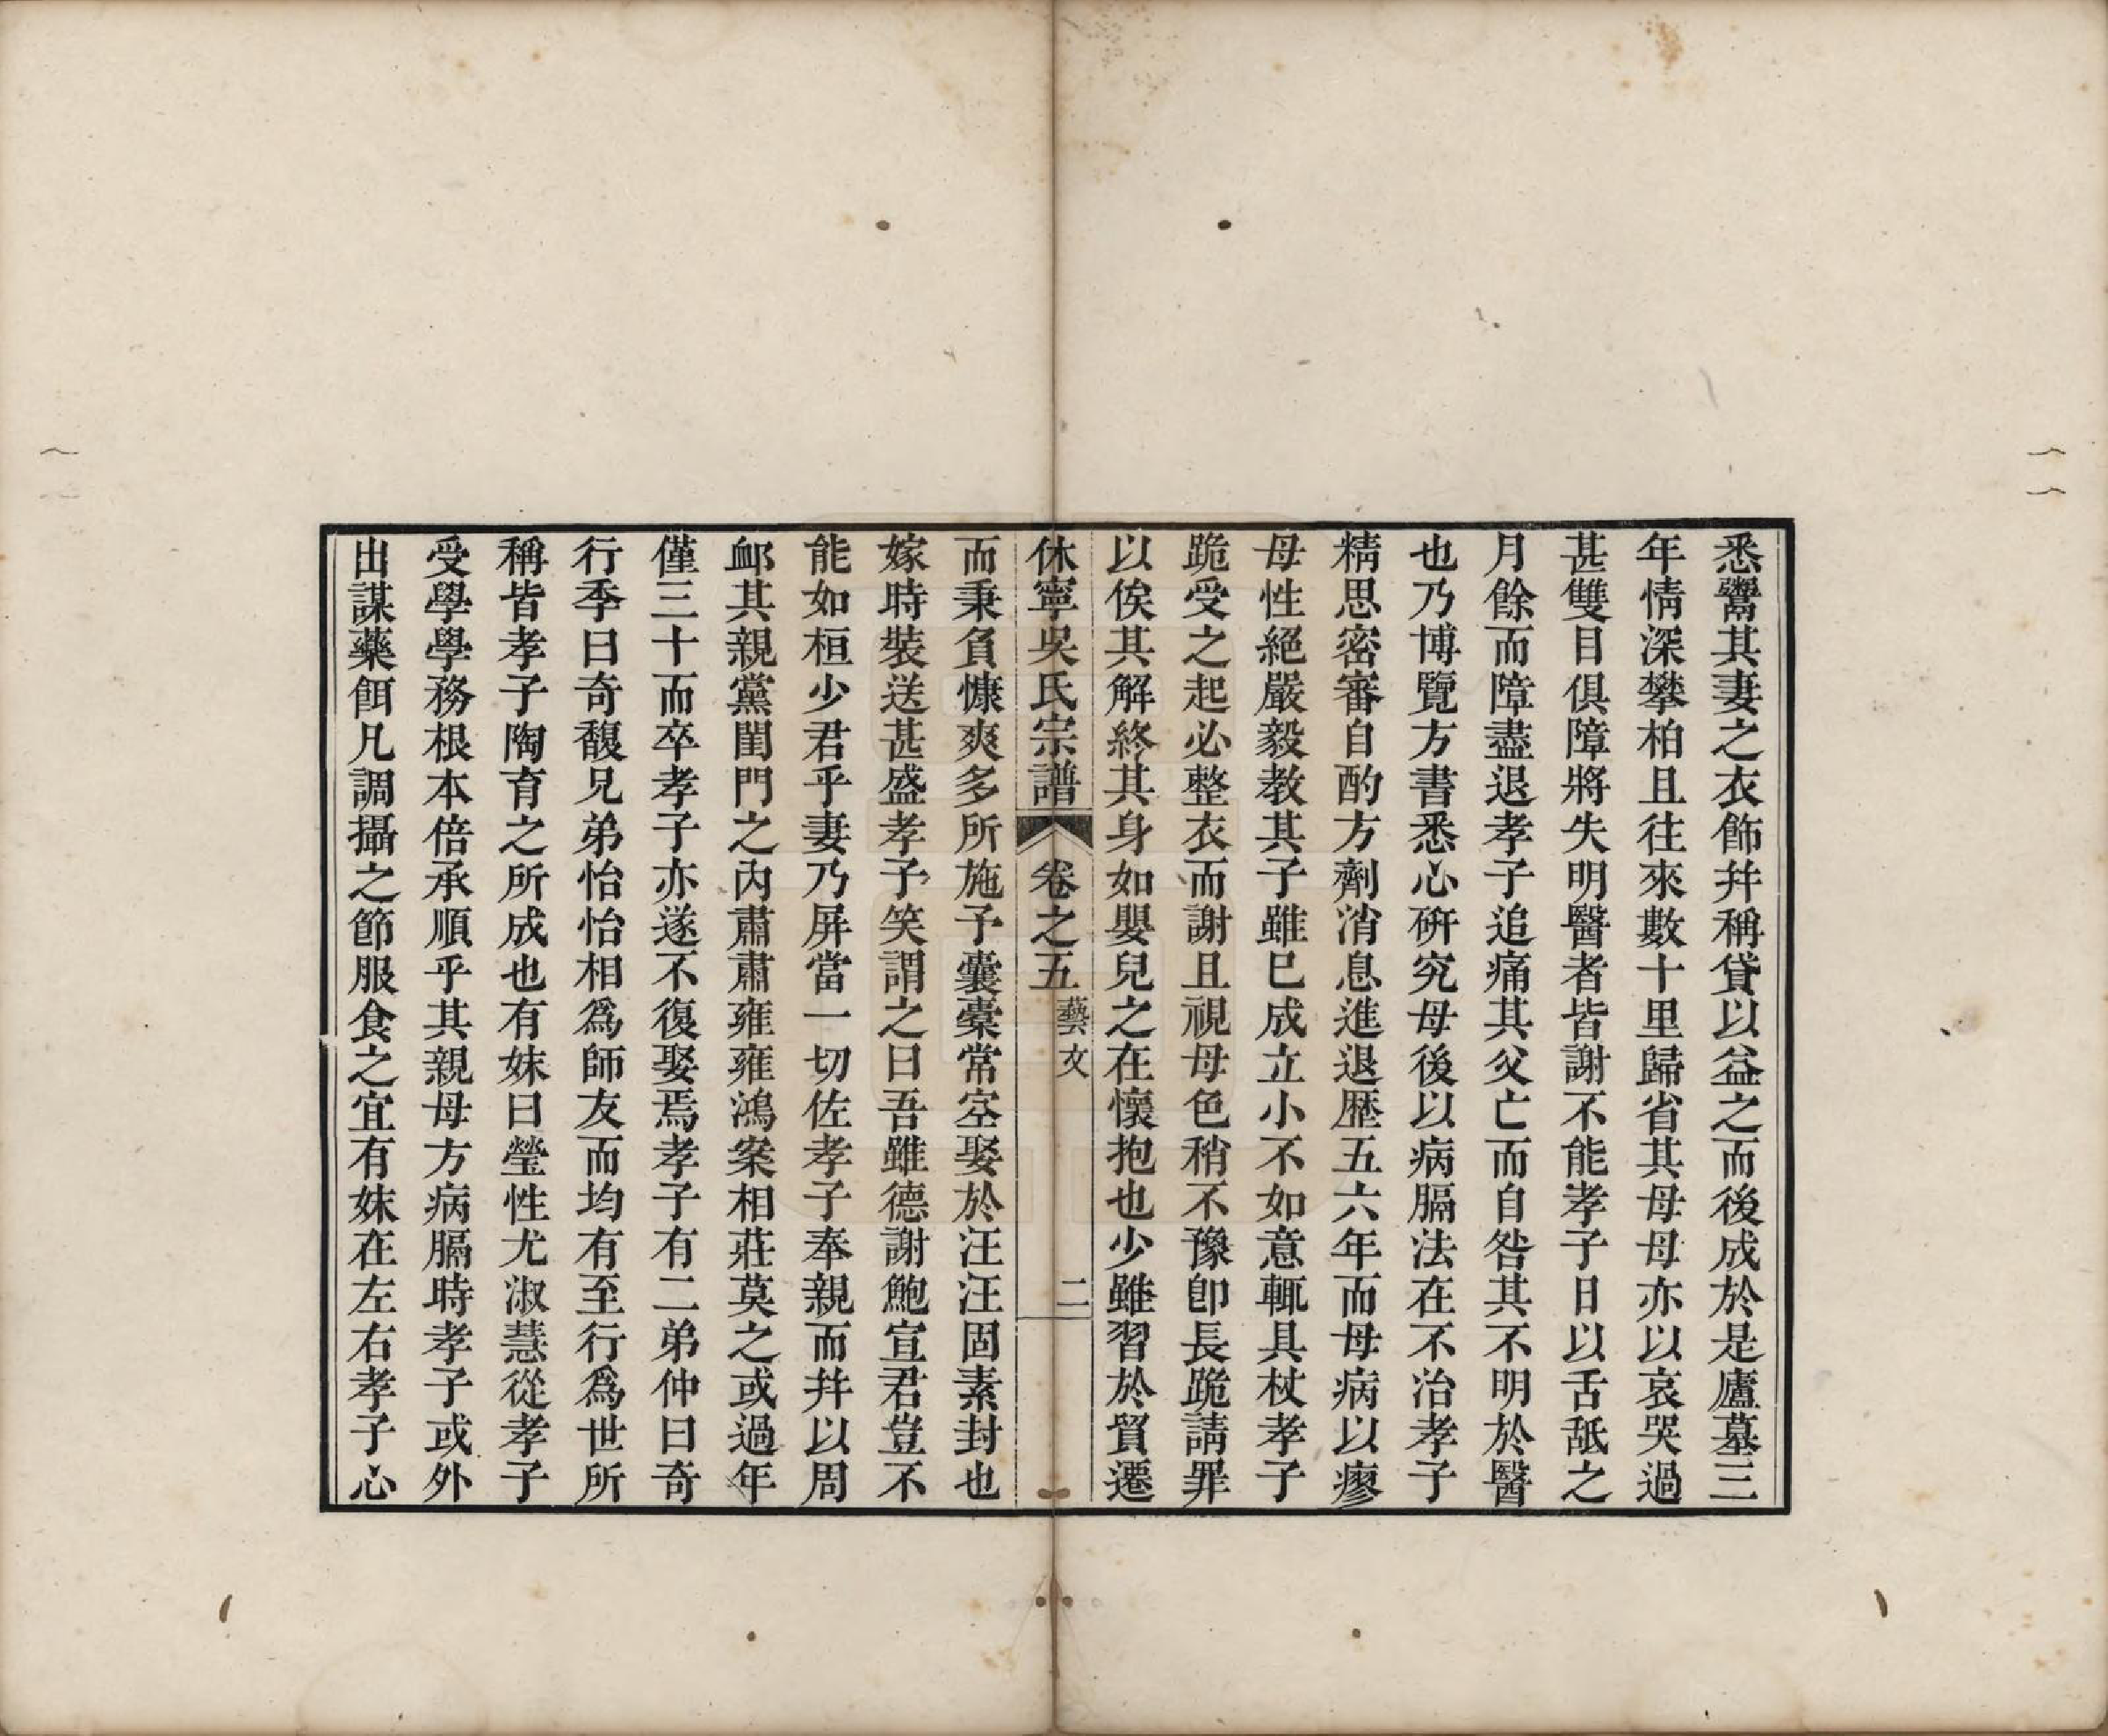 悉鬻其妻之衣飾幷稱貸以益之而後成於是廬墓三
年情深攀柏且往來數十里歸省其母母亦以哀哭過
甚雙目俱障將失明醫者皆謝不能孝子日以舌舐之
月餘而障盡退孝子追痛其父亡而自咎其不明於醫
也乃博覽方書悉心硏究母後以病膈法在不治孝子
精思密審自酌方劑消息進退歷五六年而母病以瘳
母性絕嚴毅教其子雖已成立小不如意輒具杖孝子
跪受之起必整衣而謝且視母色稍不豫卽長跪請罪
以俟其解終其身如嬰兒之在懷抱也少雖習於貿遷
休寧吳氏宗譜 卷之五 藝文 二
而秉負慷爽多所施予囊橐常空娶於汪汪固素封也
嫁時裝送甚盛孝子笑謂之曰吾雖德謝鮑宣君豈不
能如桓少君乎妻乃屏當一切佐孝子奉親而幷以周
卹其親黨閨門之內肅肅雍雍鴻案相莊莫之或過年
僅三十而卒孝子亦遂不復娶焉孝子有二弟仲曰奇
行季曰奇馥兄弟怡怡相爲師友而均有至行爲世所
稱皆孝子陶育之所成也有妹曰瑩性尤淑慧從孝子
受學學務根本倍承順乎其親母方病膈時孝子或外
出謀藥餌凡調攝之節服食之宜有妹在左右孝子心